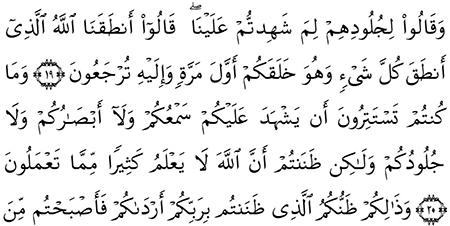 وَقَالُوا۟ لِجُلُودِهِمْ لِمَ شَهِدتُّمْ عَلَيْنَا ۖ قَالُوٓا۟ أَنطَقَنَا ٱللَّهُ ٱلَّذِىٓ
أَنطَقَ كُلَّ شَىْءٍ وَهُوَ خَلَقَكُمْ أَوَّلَ مَرَّةٍ وَإِلَيْهِ تُرْجَعُونَ ﴿١٩﴾ وَمَا
كُنتُمْ تَسْتَتِرُونَ أَن يَشْهَدَ عَلَيْكُمْ سَمْعُكُمْ وَلَآ أَبْصَٰرُكُمْ وَلَا
جُلُودُكُمْ وَلَٰكِن ظَنَنتُمْ أَنَّ ٱللَّهَ لَا يَعْلَمُ كَثِيرًا مِّمَّا تَعْمَلُونَ
﴿٢٥﴾ وَذَٰلِكُمْ ظَنُّكُمُ ٱلَّذِى ظَنَنتُم بِرَبِّكُمْ أَرْدَىٰكُمْ فَأَصْبَحْتُم مِّنَ